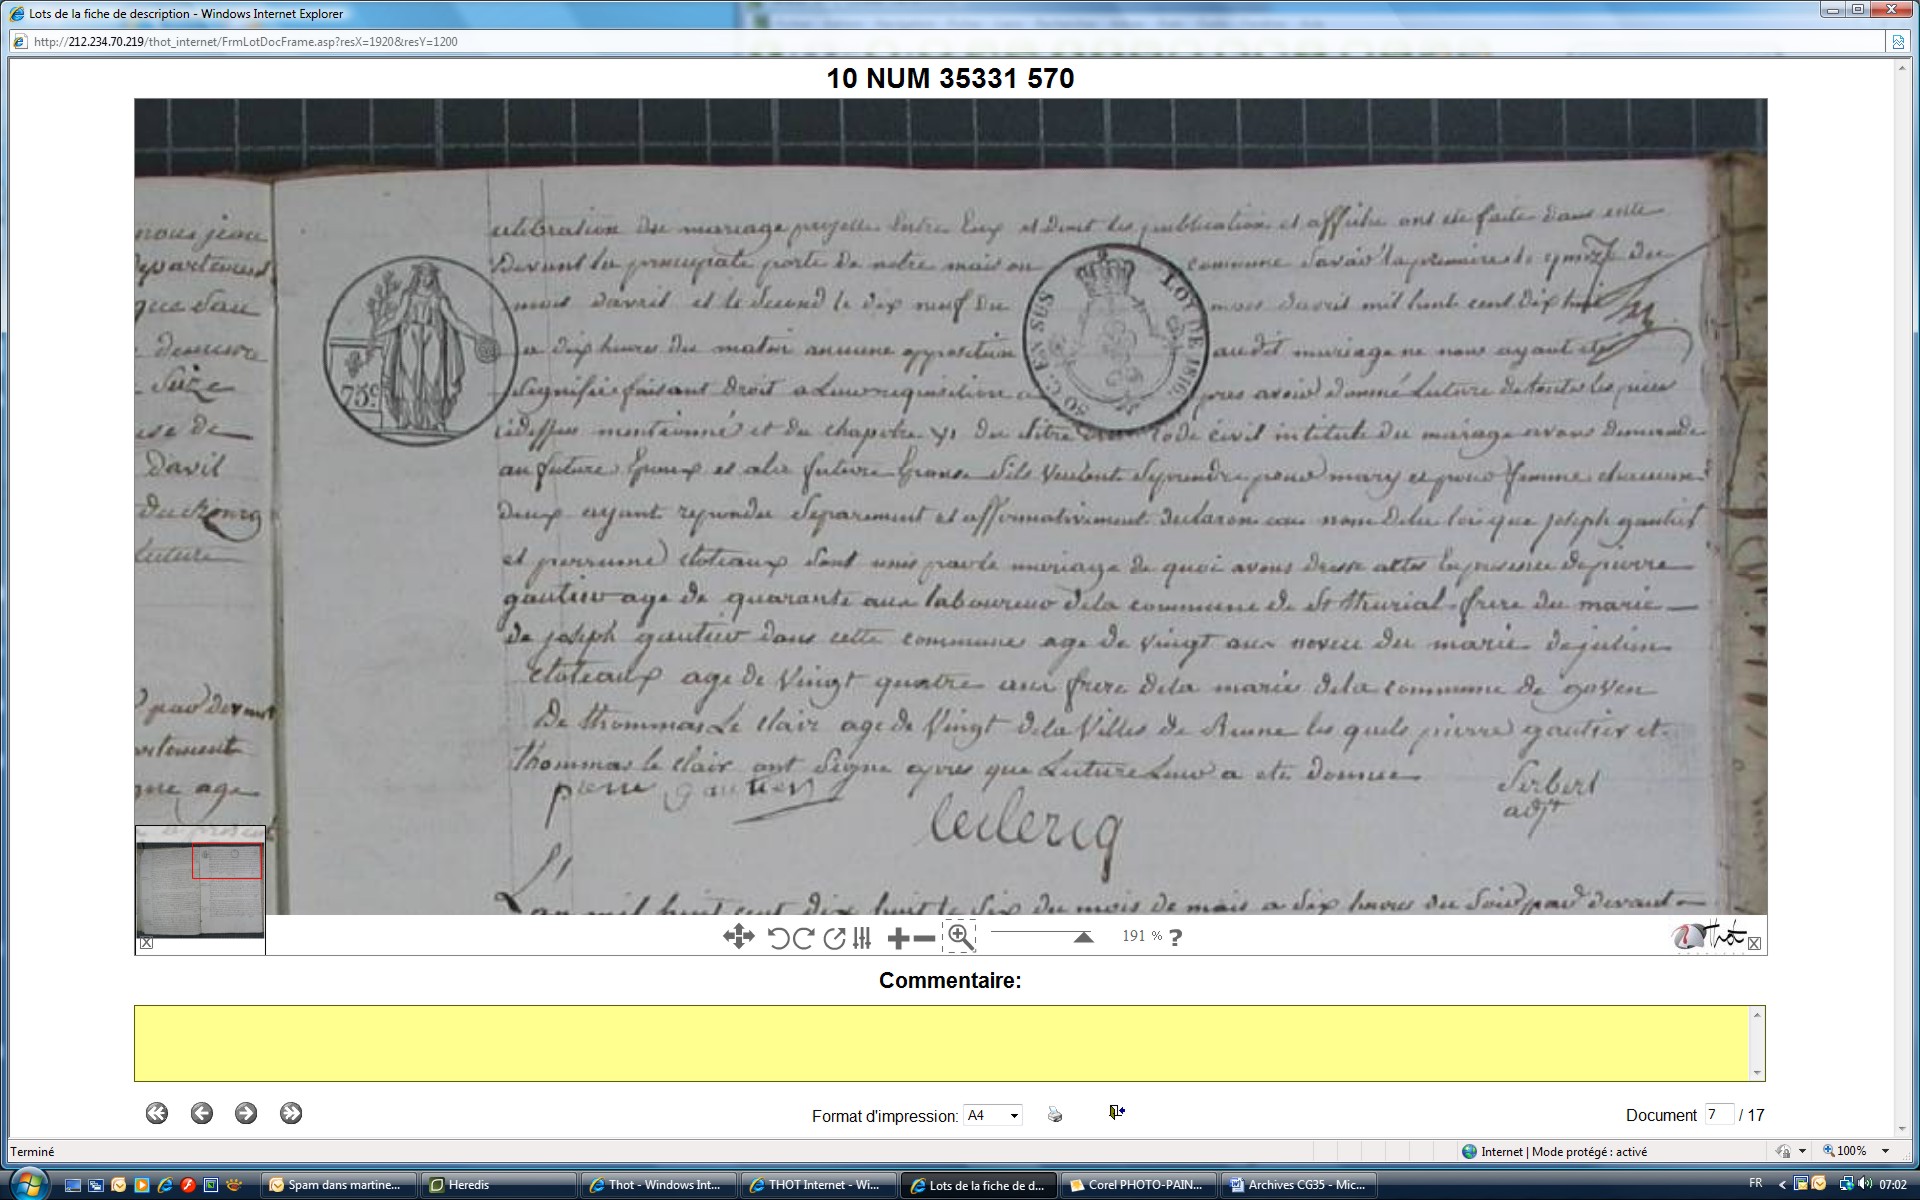 Lots de la fiche de description - Windows Internet Explorer
http://212.234.70.219/thot_internet/FrmLotDocFrame.asp?resX=1920&resY=1200
10 NUM 35331 570
nous jean
departement
que dau
demeure
Seize
davil
du Bourg
lecture
par devant
artement
age
celebration du mariage projette Entre Eux et dont les publication et affiche ont ete faite dans cette
Devant la principale porte de notre maison commune savoir la premiere le quinze du
mois davril et le second le dix neuf du mois davril mil huit cent dix huit
a dix heures du matin aucune opposition audit mariage ne nous ayant ete
signifie faisant droit a Leur requisition apres avoir donné Lecture de toute les pieces
cidessus mentionné et du chapitre VI du titre code civil intitulé du mariage avons demande
au future Epoux et ala future Epouse sils veulent se prendre pour mary et pour femme chacun
deux ayant repondu separement et affirmativement declarons au nom dela loi que joseph gautier
et perrinne cloteaux sont unis par le mariage de quoi avons dresse acte En presence de pierre
gautier age de quarante ans laboureur dela commune de St thurial frere du marie
de joseph gautier dans cette commune age de vingt ans neveu du marie de julien
cloteaux age de vingt quatre ans frere dela marie dela commune de goven
De thommas Le clair age de vingt dela villes de Renne les quels pierre gautier et
thommas le clair ont Signe apres que Lecture Leur a ete donnee
pierre gautier
leclerq
Serbert
adjt
75c
50 C. EN SUS
LOI DE 1816.
Lan mil huit cent dix huit le six du mois de mais a six heures du soir par devant
191 % ?
Thot
Commentaire:
Format d'impression: A4
Document 7 / 17
Terminé
Internet | Mode protégé : activé
100%
Spam dans martine...
Heredis
Thot - Windows Int...
THOT Internet - Wi...
Lots de la fiche de d...
Corel PHOTO-PAIN...
Archives CG35 - Mic...
FR
07:02